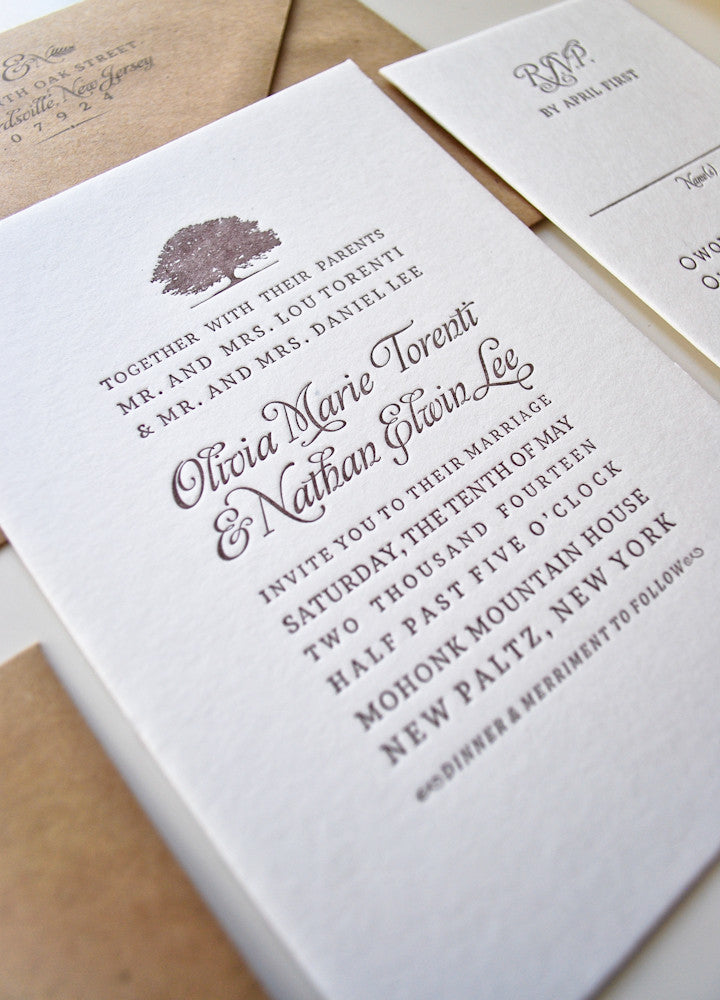 & N
OAK STREET
New Jersey
07924
TOGETHER WITH THEIR PARENTS
MR. AND MRS. LOU TORENTI
& MR. AND MRS. DANIEL LEE
Olivia Marie Torenti
& Nathan Elwin Lee
INVITE YOU TO THEIR MARRIAGE
SATURDAY, THE TENTH OF MAY
TWO THOUSAND FOURTEEN
HALF PAST FIVE O'CLOCK
MOHONK MOUNTAIN HOUSE
NEW PALTZ, NEW YORK
DINNER & MERRIMENT TO FOLLOW
RSVP.
BY APRIL FIRST
Name(s)